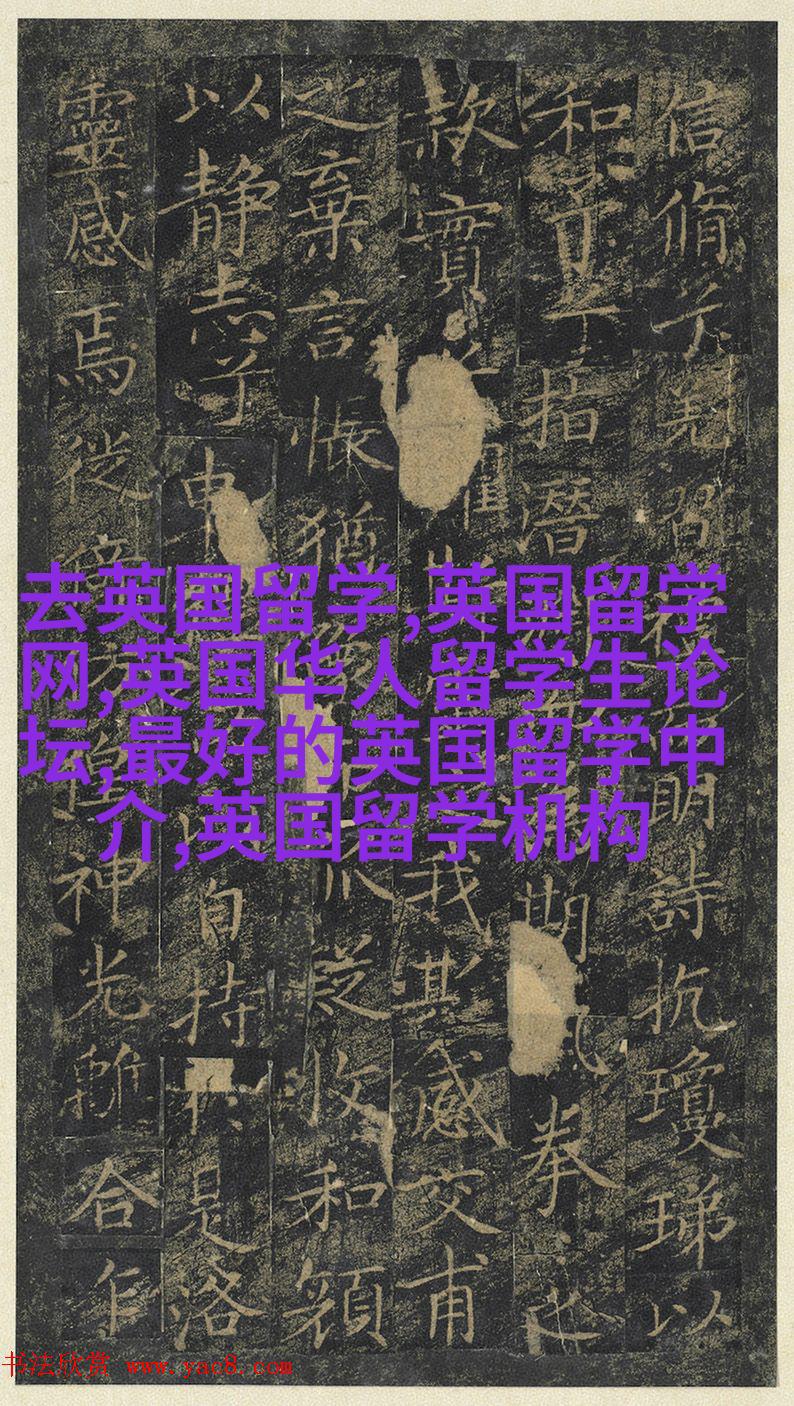 信脩兮羌習明詩抗瓊珶以
和予兮指潛期拳之
款實之懼我其感交甫
之棄言悵猶收和顏
以靜志兮申自持是洛
靈感焉徙神光離合乍
去英国留学,英国留学
网,英国华人留学生论
坛,最好的英国留学中
介,英国留学机构
书法欣赏 www.yac8.com